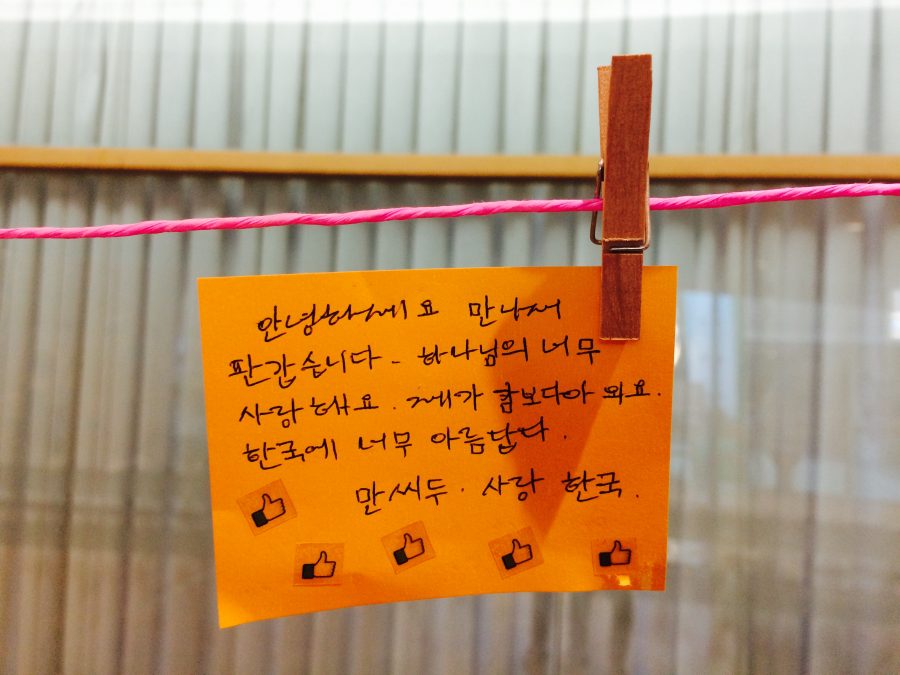 안녕하세요 만나서
판갑습니다. 하나님의 너무
사랑해요. 제가 캄보디아 와요.
한국에 너무 아름답다.
만씨두. 사랑 한국.